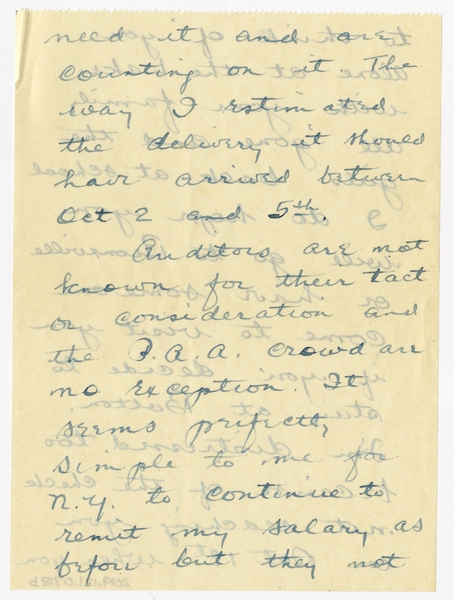 need it and are
counting on it. The
way I estimated
the delivery it should
have arrived between
Oct 2 and 5th.
Auditors are not
known for their tact
or consideration and
the P.A.A. crowd are
no exception. It
seems perfectly
simple to me for
N.Y. to continue to
remit my salary as
before but they not